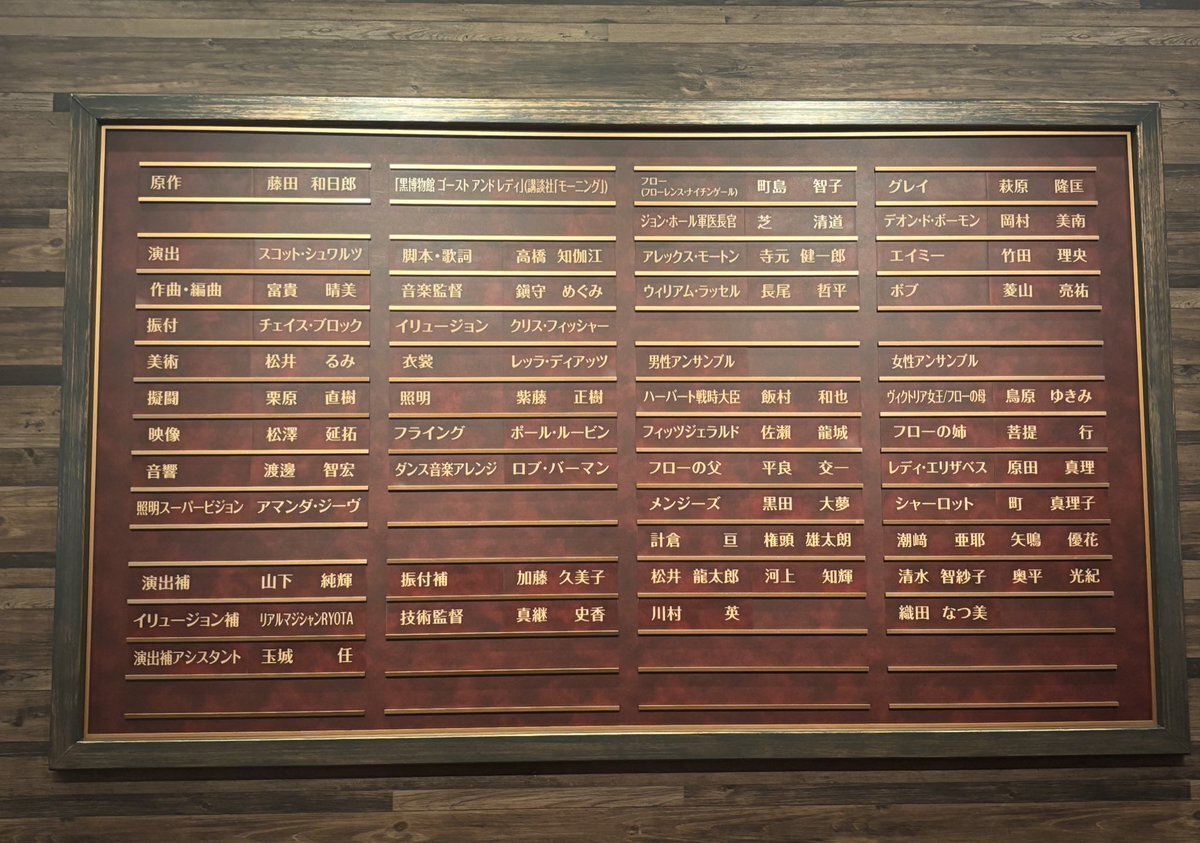 原作 藤田 和日郎
演出 スコット・シュワルツ
作曲・編曲 富貴 晴美
振付 チェイス・ブロック
美術 松井 るみ
擬闘 栗原 直樹
映像 松澤 延拓
音響 渡邊 智宏
照明スーパービジョン アマンダ・ジーヴ
演出補 山下 純輝
イリュージョン補 リアルマジシャンRYOTA
演出補アシスタント 玉城 任
「黒博物館 ゴースト アンド レディ」(講談社「モーニング」)
脚本・歌詞 高橋 知伽江
音楽監督 鎭守 めぐみ
イリュージョン クリス・フィッシャー
衣裳 レッラ・ディアッツ
照明 紫藤 正樹
フライング ポール・ルービン
ダンス音楽アレンジ ロブ・バーマン
振付補 加藤 久美子
技術監督 真継 史香
フロー
(フローレンス・ナイチンゲール) 町島 智子
ジョン・ホール軍医長官 芝 清道
アレックス・モートン 寺元 健一郎
ウィリアム・ラッセル 長尾 哲平
男性アンサンブル
ハーバート戦時大臣 飯村 和也
フィッツジェラルド 佐瀬 龍城
フローの父 平良 交一
メンジーズ 黒田 大夢
計倉 亘 権頭 雄太朗
松井 龍太郎 河上 知輝
川村 英
グレイ 萩原 隆匡
デオン・ド・ボーモン 岡村 美南
エイミー 竹田 理央
ボブ 菱山 亮祐
女性アンサンブル
ヴィクトリア女王/フローの母 鳥原 ゆきみ
フローの姉 菩提 行
レディ・エリザベス 原田 真理
シャーロット 町 真理子
潮﨑 亜耶 矢鳴 優花
清水 智紗子 奥平 光紀
織田 なつ美